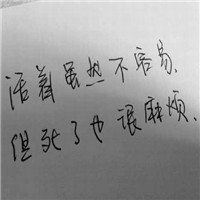 活着虽然不容易、
但死了也很麻烦、